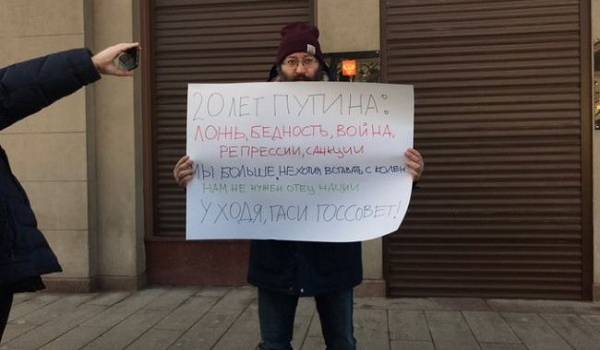 20 ЛЕТ ПУТИНА:
ЛОЖЬ, БЕДНОСТЬ, ВОЙНА,
РЕПРЕССИИ, САНКЦИИ
МЫ БОЛЬШЕ, НЕ ХОТИМ ВСТАВАТЬ С КОЛЕН
НАМ НЕ НУЖЕН ОТЕЦ НАЦИИ
УХОДЯ, ГАСИ ГОССОВЕТ!